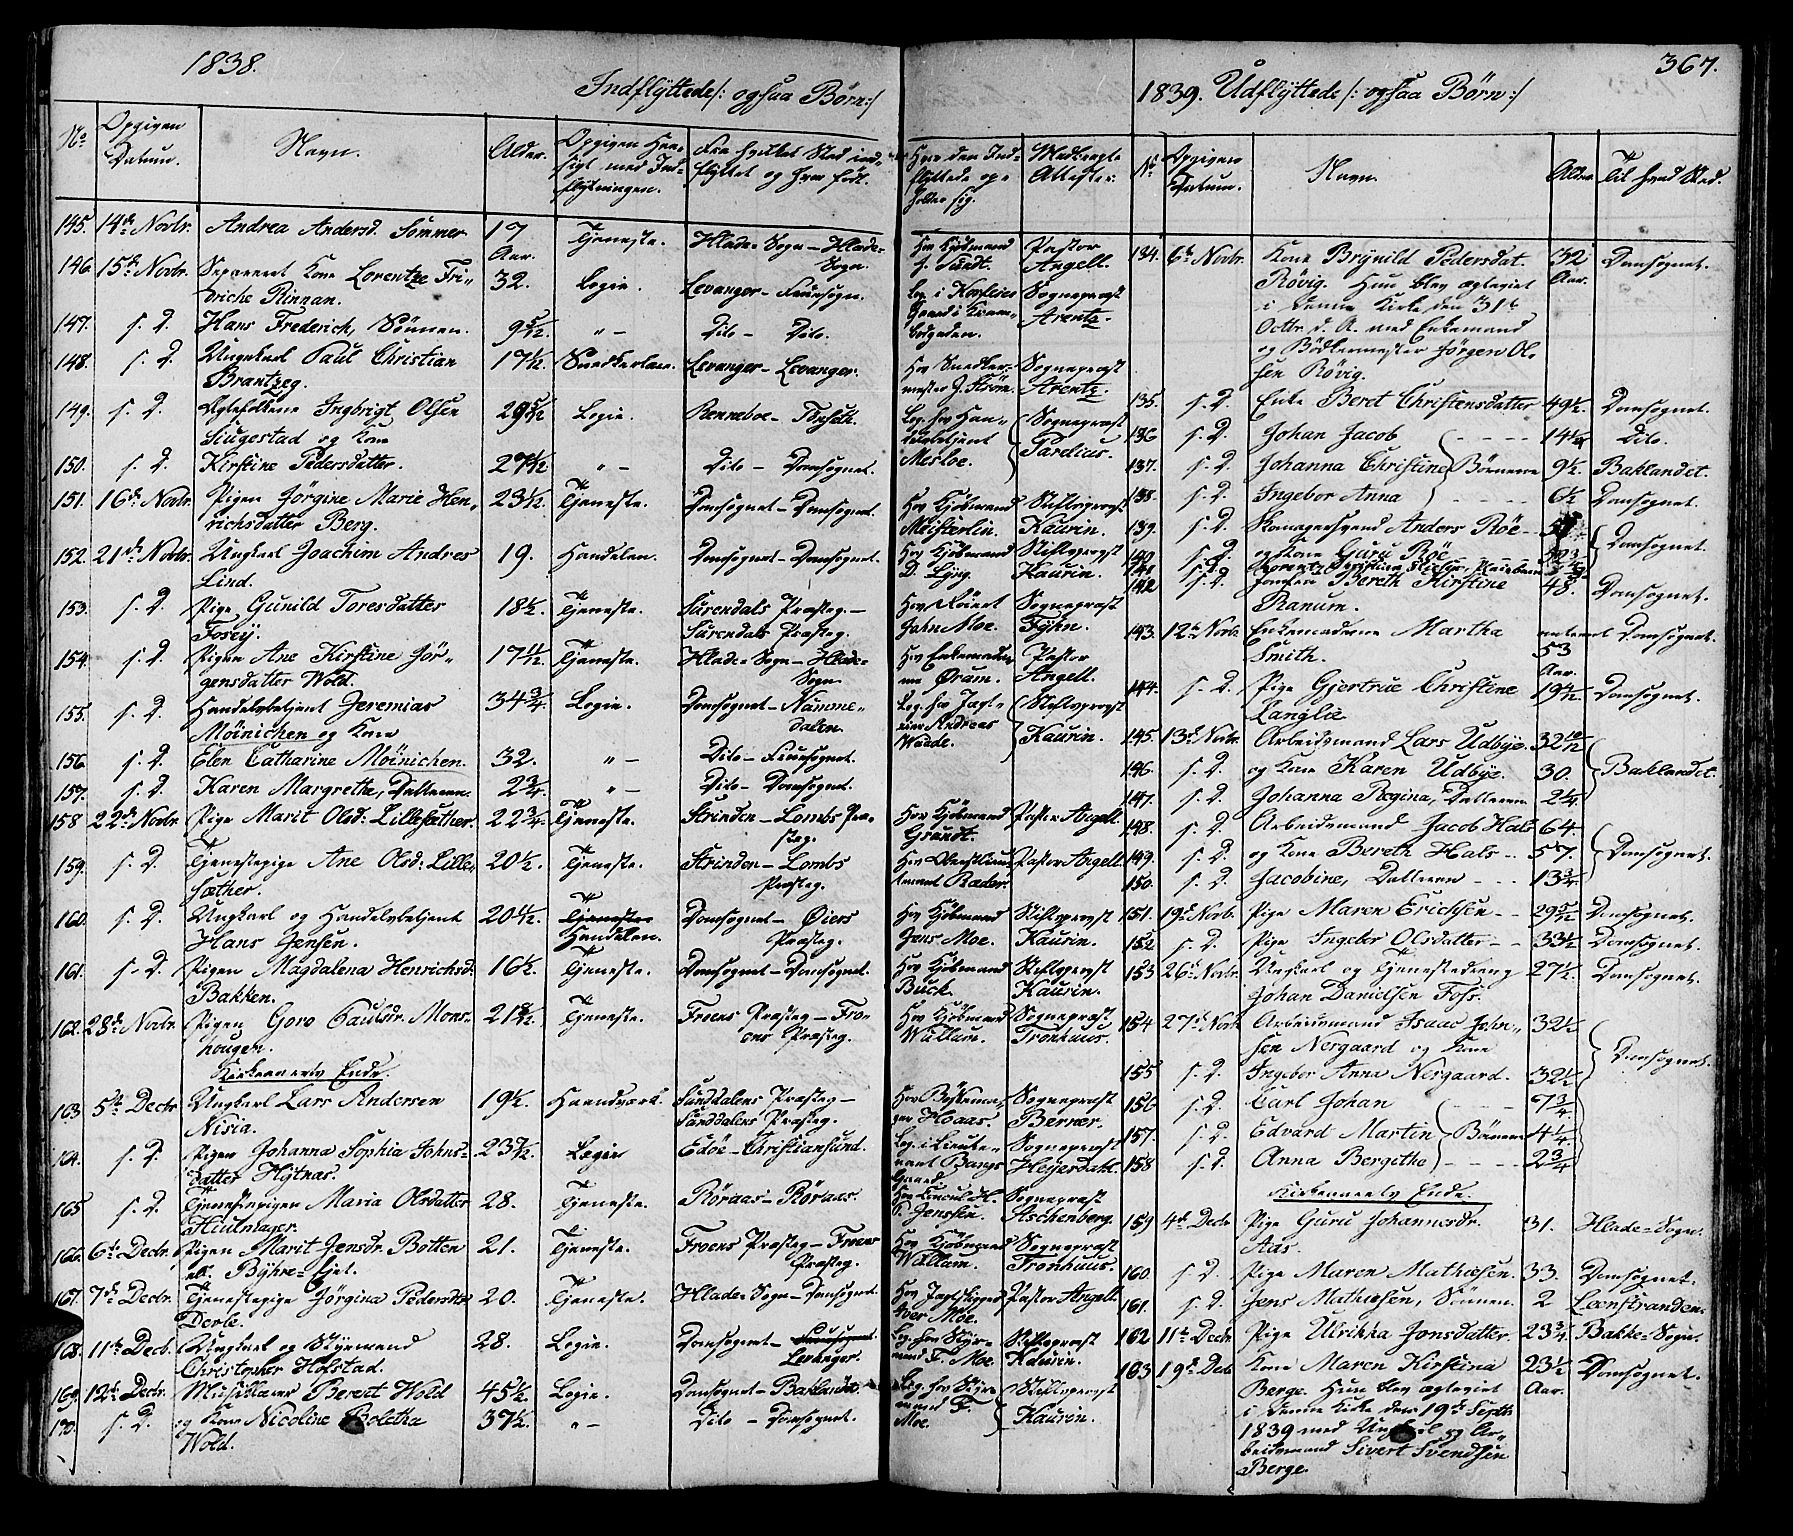 1838.
Indflyttede /: ogsaa Børn :/
No
Opgiven Datum.
Navn.
Alder.
Opgiven Hensigt med Indflytningen.
Fra hvilket Sted indflyttet og hvor født.
Hvor den Indflyttede opholder sig.
Medbragte Attester.
145. 14de Novbr. Andrea Andersd. Sommer 17 Aar. Tjeneste. Hlade-Sogn – Hlade-Sogn. Hos Kjøbmand Pastor Angell.
146. 15de Novbr. Separeret Kone Lorentze Fridriche Rinnan. 32. Logie. Levanger – Fruesogn. Sogneprest Arentz.
147. s. D. Hans Frederich, Sønnen. 9 5/12 „ – Dito – Dito.
148. s. D. Ungkarl Paul Christian Brantzeg. 17 1/2 Snedkerlære. Levanger – Levanger. Hos Snedkermester J. Strøm. Sogneprest Arentz.
149. s. D. Ægtefolkene Ingbrigt Olsen Siugestad og Kone 29 Logie. Renneboe – Log. hos Handelsbetjent Misloe. Sogneprest Pardius.
150. s. D. Kirstine Pedersdatter. 27 1/2 „ – Dito – Domsognet.
151. 16de Novbr. Pigen Jørgine Marie Henrichsdatter Berg. 23 1/2. Tjeneste. Domsognet – Domsognet. Hos Kjøbmand Meisterlin. Stiftsprovst Kaurin.
152. 21de Novbr. Ungkarl Joachim Andres Lind. 19. Handelen. Domsognet – Domsognet. Hos Kjøbmand D. Lyng. Stiftsprovst Kaurin.
153. s. D. Pige Gunild Toresdatter Fosey. 18 1/2. Tjeneste. Surendals Præsteg. – Surendals Præsteg. Hos John Moe. Sogneprest Tyhn.
154. s. D. Pigen Ane Kirstine Jørgensdatter Wold. 17 11/12 Tjeneste. Hlade-Sogn – Hlade-Sogn. Hos Enkemadame Øram. Pastor Angell.
155. s. D. Handelsbetjent Jeremias Møinichen og Kone 34 3/4. Logie. Domsognet – Nammedalen. Log. hos Andreas Wadde. Stiftsprovst Kaurin.
156. s. D. Elen Catharine Møinichen. 32. „ – Dito – Fruesognet.
157. s. D. Karen Margretha, Datteren. 2 3/4. „ – Dito – Domsognet.
158 22de Novbr. Pige Marit Olsd: Lillesæther. 22 3/4. Tjeneste. Strinden – Lombs Præsteg. Hos Kjøbmand Grundt. Pastor Angell.
159. s. D. Tjenestepige Ane Olsd: Lillesæther. 20 1/2. Tjeneste. Strinden – Lombs Præsteg. Hos Oberstlieutenant Ræder. Pastor Angell.
160. s. D. Ungkarl og Handelsbetjent Hans Jensen. 20 1/2. Tjeneste Handelen. Domsognet – Øiers Præsteg. Hos Kjøbmand Jens Moe. Stiftsprovst Kaurin.
161. s. D. Pigen Magdalena Henrichsd. Bakken. 16 1/2. Tjeneste. Domsognet – Domsognet. Hos Kjøbmand Buck. Stiftsprovst Kaurin.
162. 28de Novbr. Pigen Goro Paulsdr. Monshougen. 21 Tjeneste. Froens Præsteg – Froens Præsteg. Hos Kjøbmand Wullum. Sogneprest Tronhuus.
Kirkeaarets Ende.
163. 5te Decbr. Ungkarl Lars Andersen Nisia. 19 1/2. Haandværk. Sunddalens Præsteg – Sunddalens Præsteg. Hoaas. Sogneprest Berner.
164. s. D. Pigen Johanna Sophia Johnsdatter Hitnas. 23 Logie Edøe – Christiansund. Log. i Lieutenant Bangs Gaard. Sogneprest Heyerdahl.
165 s. D. Tjenestepigen Maria Olsdatter Hiulmager. 28. Tjeneste. Røraas – Røraas. Hos Consul H. P. Jenssen. Sogneprest Aschenberg.
166. 6te Decbr. Pigen Marit Jensdr. Botten ell. Byhre-Ejet. 21. Tjeneste. Froens Præsteg – Froens Præsteg. Hos Kjøbmand Wullum. Sogneprest Tronhuus.
167. 7de Decbr. Tjenestepige Jørgina Pedersdtr Derle. 20. Tjeneste. Hlade-Sogn – Domsognet. Hos Iver Moe. Pastor Angell.
168. 11te Decb. Ungkarl og Styrmand Christopher Hofstad. 28. Logie. Domsognet – Levanger. Log. hos Styrmand F. Moe. Stiftsprovst Kaurin.
169. 12te Decbr. Berent Wold 45 1/2. Logie. Domsognet – Baklandet. Log. hos Styrmand F. Moe. Stiftsprovst Kaurin.
170. s. D. og Kone Nicoline Boletha Wold. 37 1/2. „ – Dito – Domsognet.
367.
1839. Udflyttede /: ogsaa Børn :/
No
Opgiven Datum.
Navn.
Alder.
Til hvad Sted.
134. 6te Novbr. Kone Brynild Pedersdat. Røvig. Hun blev ægteviet i denne Kirke den 31te Octbr d. A. med Enkemand og Bødkermester Jørgen Olsen Røvig. 32 Aar. Domsognet.
135. s. D. Enke Beret Christensdatter 49 1/2. Domsognet.
136 s. D. Johan Jacob 14 1/2 Dito.
137. s. D. Johanna Christine Børnene 9 1/2. Baklandet.
138. s. D. Ingebor Anna 6 1/2 Domsognet.
139. s. D. Anders Røe Domsognet.
140 s. D. og Kone Guru Roe
141 s. D.
142 s. D. Jomfru Bereth Kirstine Ranum. 48. Domsognet.
143. 12te Novbr. Enkemadame Martha Smith. 53 Aar. Domsognet.
144. s. D. Pige Gjertrue Christine Langlie 19 Domsognet.
145. 13de Novbr. Arbeidsmand Lars Udbye. 32 10/12 Baklandet.
146. s. D. og Kone Karen Udbye. 30.
147. s. D. Johanna Regina, Datteren 2 1/4.
148. s. D. Arbeidsmand Jacob Hals 64. Domsognet.
149. s. D. og Kone Bereth Hals 57.
150. s. D. Jacobine, Datteren 13 3/4.
151. 19de Novb. Pige Maren Erichsen 29 5/12 Domsognet.
152 s. D. Pige Ingebor Olsdatter 33 1/2 Domsognet.
153 26de Novbr. Ungkarl og Tjenestedreng Johan Danielsen Foss. 27 1/2. Domsognet.
154 27de Novb. Arbeidsmand Isaac Johnsen Nergaard og Kone 32 1/2 Domsognet.
155 s. D. Ingebor Anna Nergaard. 32 1/2
156 s. D. Carl Johan 7 3/4.
157. s. D. Edvard Martin Børnene 4 1/4.
158 s. D. Anna Bergithe 2 3/4
Kirkeaarets Ende.
159 4de Decbr Pige Guru Johannesdr. Aas. 31. Hlade-Sogn.
160. s. D. Pige Maren Mathiesen. 33. Domsognet.
161. s. D. Jens Mathiesen, Sønnen 2 Leenstranden.
162 11te Decbr Pige Ulrikka Jonsdatter. 23 3/4. Bakke-Sogn.
163 19de Decb Kone Maren Kirstina Berge. Hun blev ægteviet i denne Kirke den 19de Septbr 1839 med Ungkarl og Arbeidsmand Sivert Svendsen Berge. 23 1/2 Aar. Domsognet.